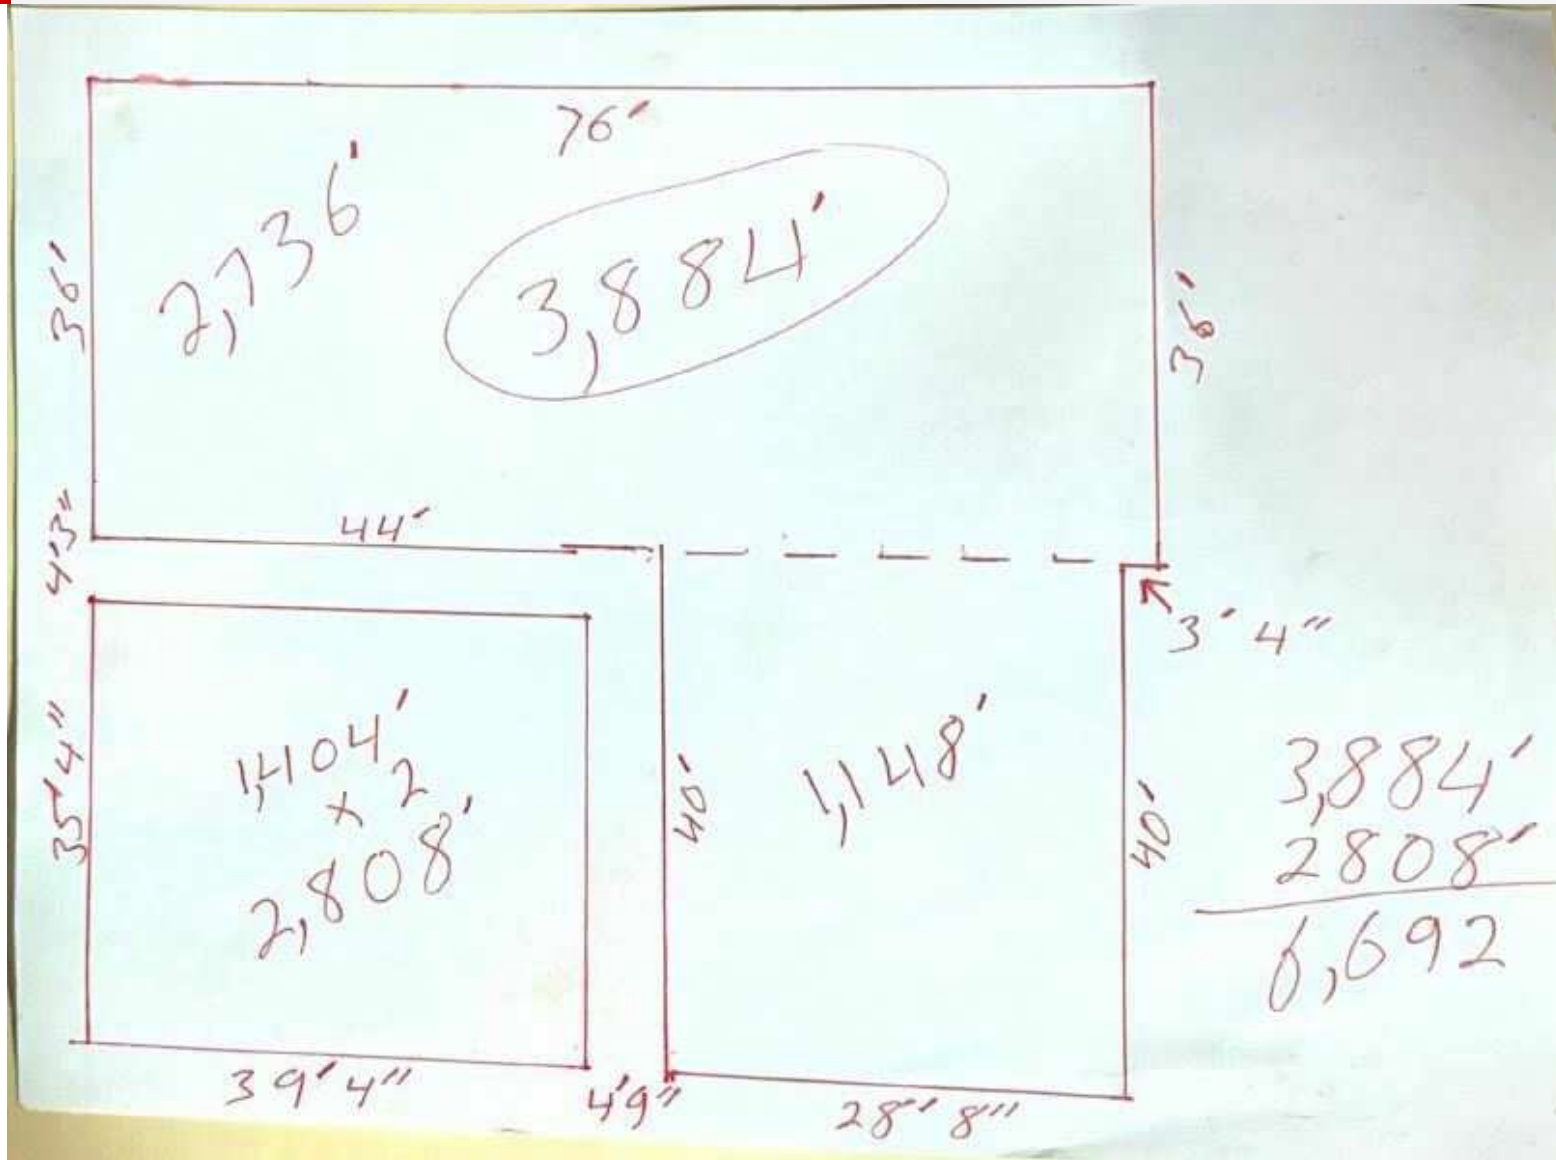 76'
2,736'
3,884'
36'
36'
44'
4'3"
3' 4"
35'4"
1,404'
x 2
2,808'
40'
1,148'
40'
3,884'
2808'
6,692
39'4"
4'9"
28'' 8''